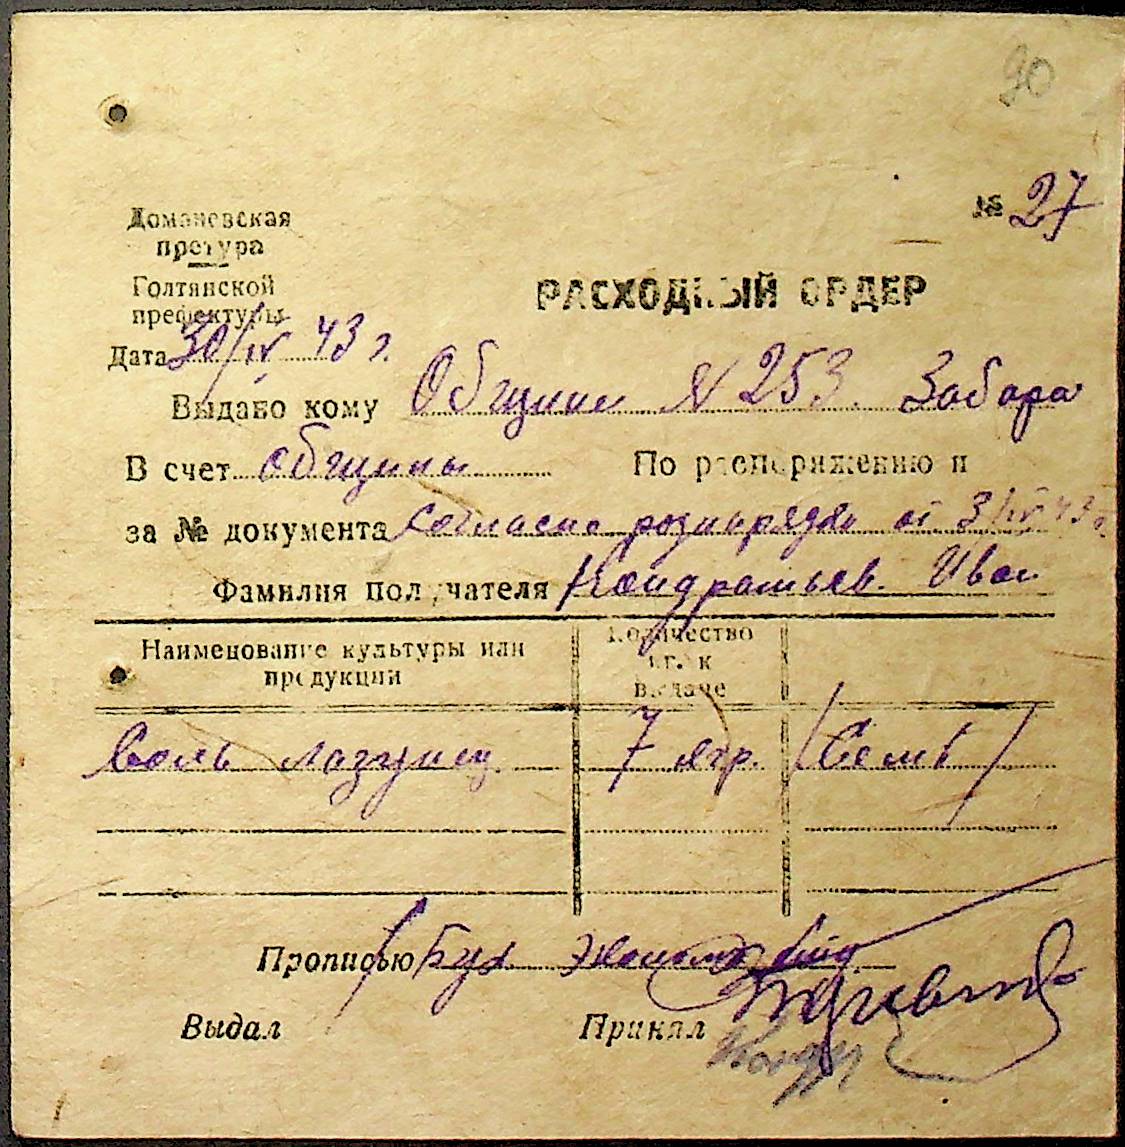 90
№ 27
Доманевская
претура
Голтянской
префектуры
РАСХОДНЫЙ ОРДЕР
Дата 30/IV 43 г.
Выдано кому Общине № 253 Забара
В счет общины По распоряжению и
за № документа согласно разнарядки от 3/IV 43 г.
Фамилия получателя Кондратьев Иван
Наименование культуры или продукции Количество кг. к выдаче
Соль 7 кгр. /Семь/
Прописью Бух
Выдал Принял Конду